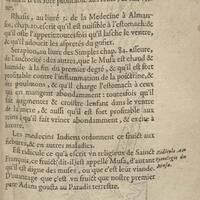 Rhasis, au livre 3. de la Medecine à Almanz-
sor, chap. 20. escrit qu'il est nuisible à l'estomach &
qu'il oste l'appetit toutesfois qu'il lasche le ventre,
& qu'il adoucit les aspretés du gosier.
Serapion au livre des Simples chap. 84. asseure,
de l'authorité des autres, que le Musa est chaud &
humide à la fin du premier degré, & qu'il est fort
profitable contre l'inflammation de la poictrine, &
des poulmons, & qu'il charge l'estomach à ceux
qui en mangent abondamment: toutesfois qu'il
fait augmenter & croistre l'enfant dans le ventre
de la mere, & aussi qu'il est fort profitable aux
reins: qu'il fait vriner abondamment, & excite à
luxure.
Les medecins Indiens ordonnent ce fruict aux
fiebures, & en autres maladies.
Est ridicule ce qu'a escrit vn religieux de Sainct
François, ce fruict, dit-il, est appellé Musa, d'autant
qu'il est digne des muses, ou que c'est leur viande.
D'auantage que c'est vn fruict que nostre premier
pere Adam gousta au Paradis terrestre.
Ridicule
Musa.